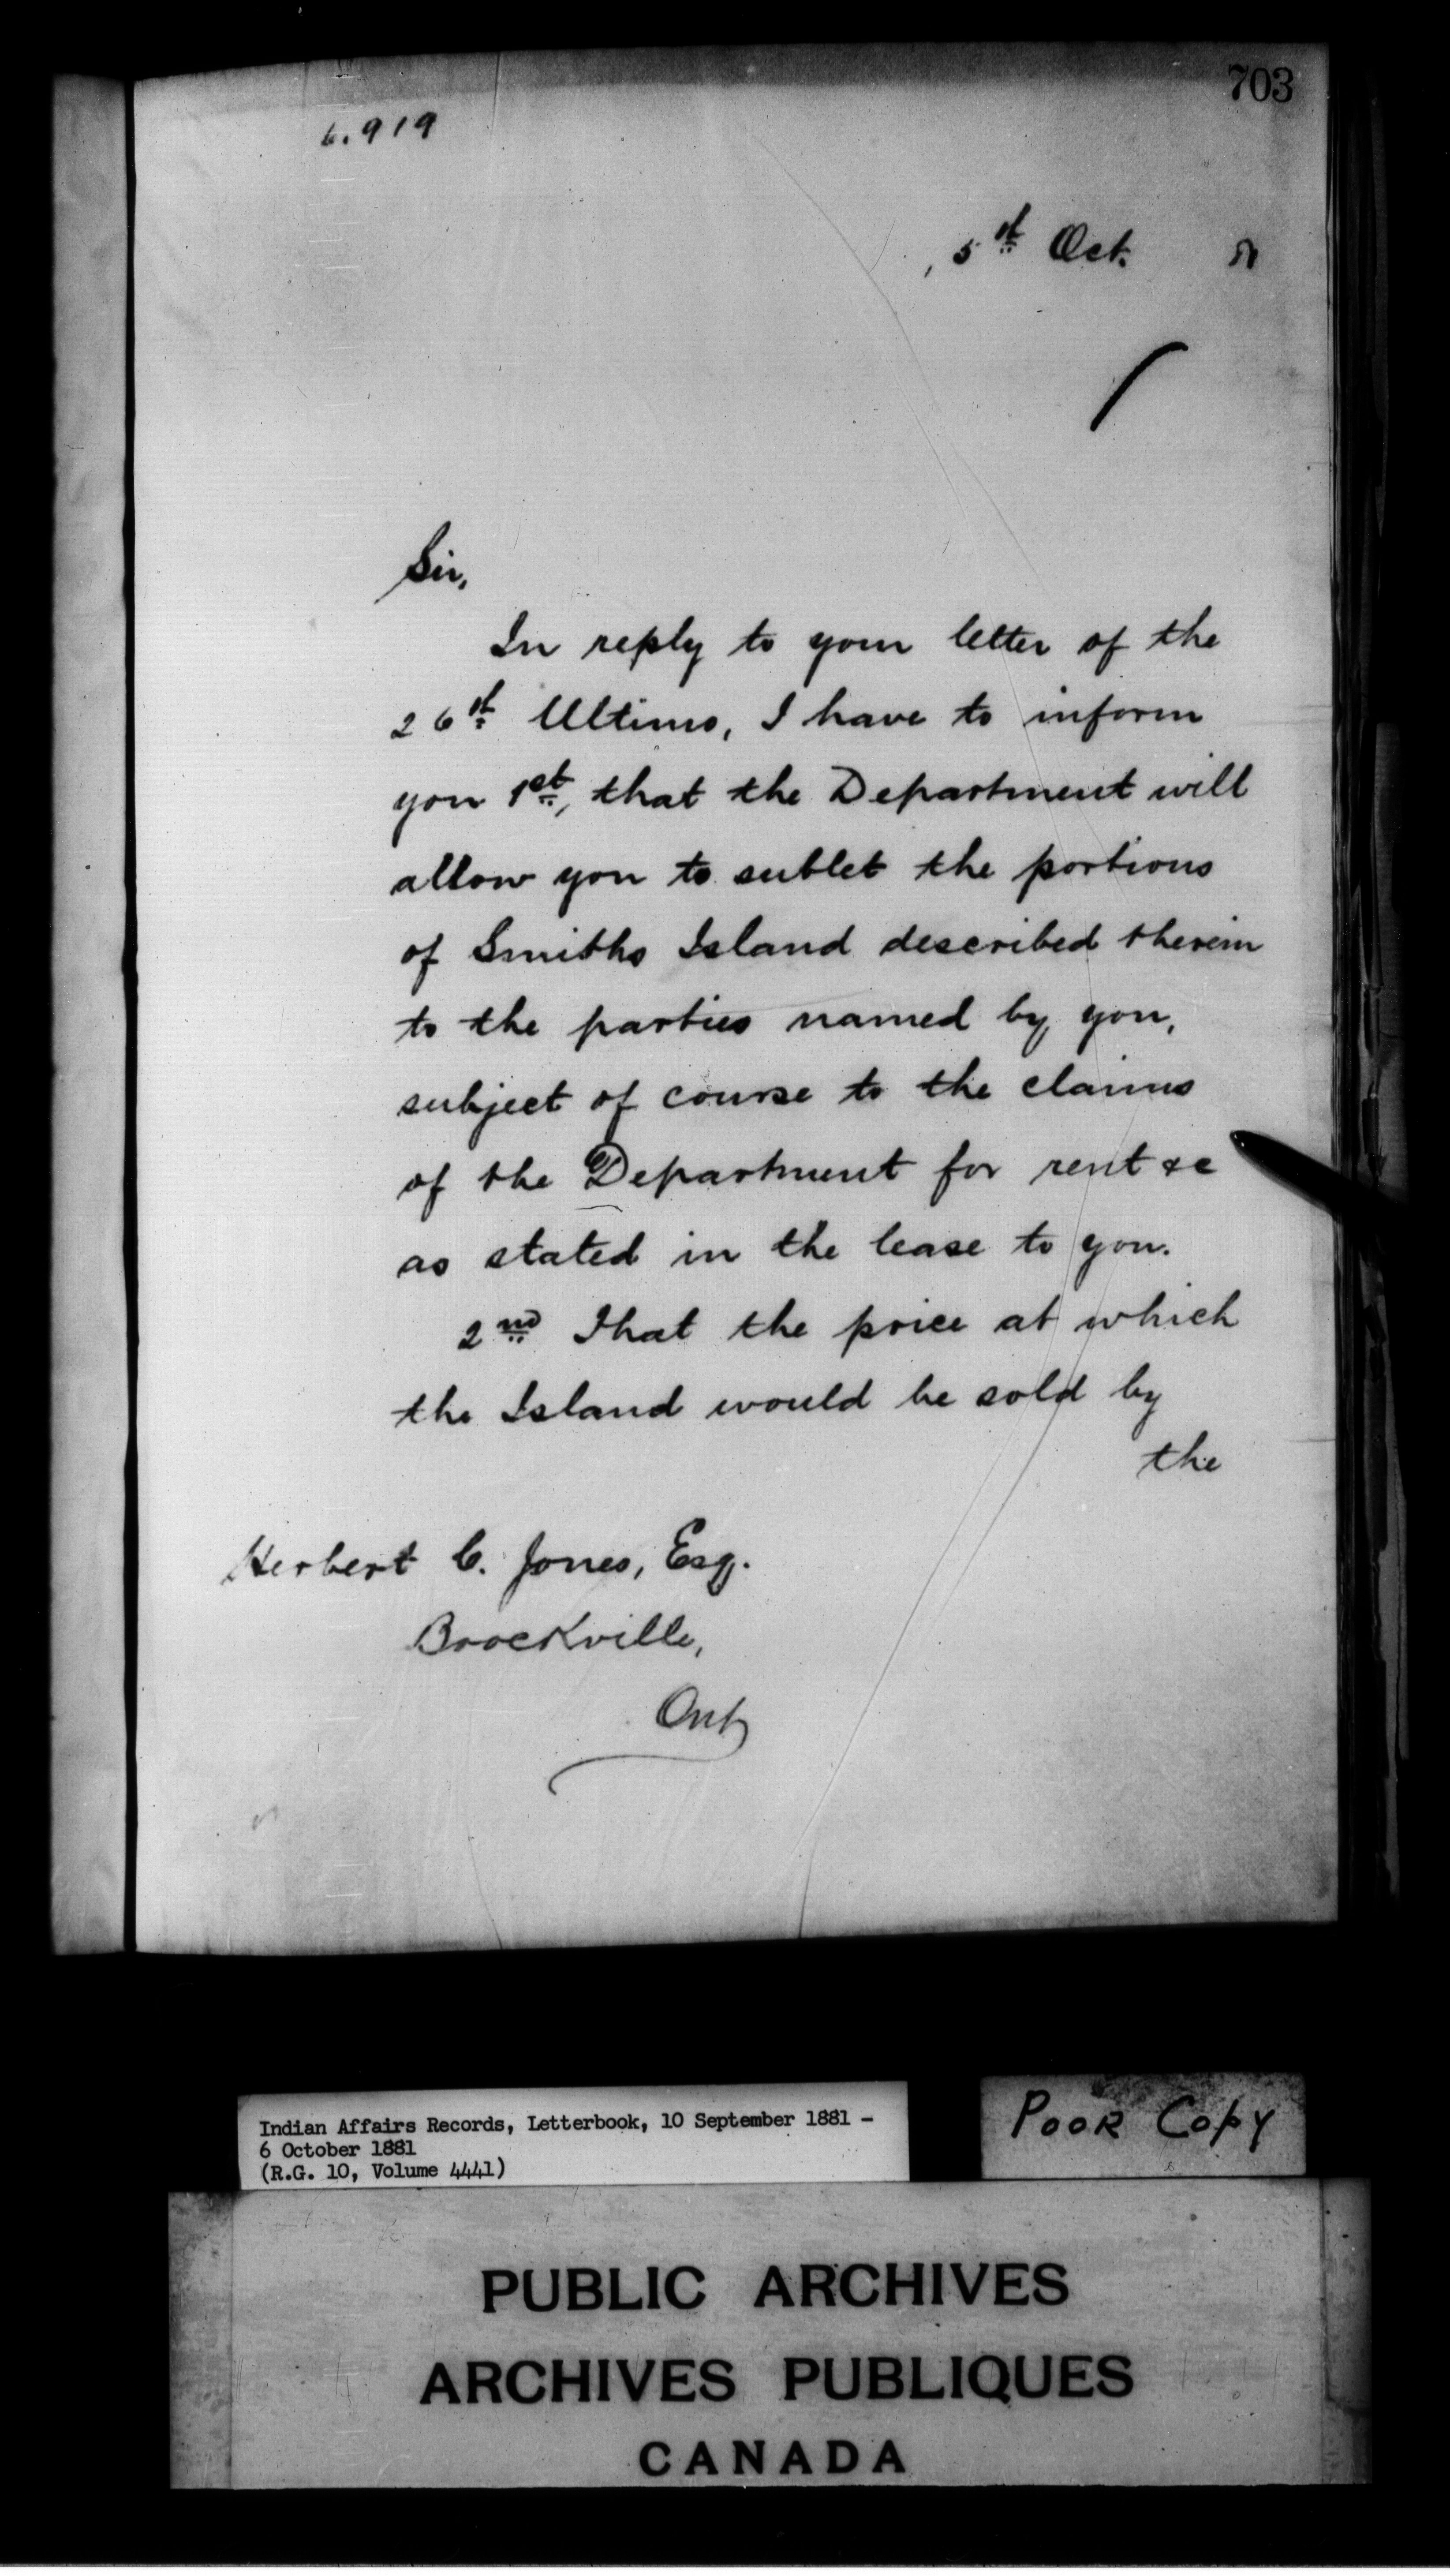 703
6.919
5th Oct.
Sir,
In reply to your letter of the
26th Ultimo, I have to inform
you 1st, that the Department will
allow you to sublet the portions
of Smiths Island described therein
to the parties named by you,
subject of course to the claims
of the Department for rent &c
as stated in the lease to you.
2nd That the price at which
the Island would be sold by
the
Herbert C. Jones, Esq.
Brockville,
Ont
Indian Affairs Records, Letterbook, 10 September 1881 -
6 October 1881
(R.G. 10, Volume 4441)
POOR COPY
PUBLIC ARCHIVES
ARCHIVES PUBLIQUES
CANADA